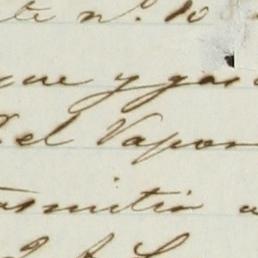 te nº. 10
que y gas
del Vapor
trasmitia a